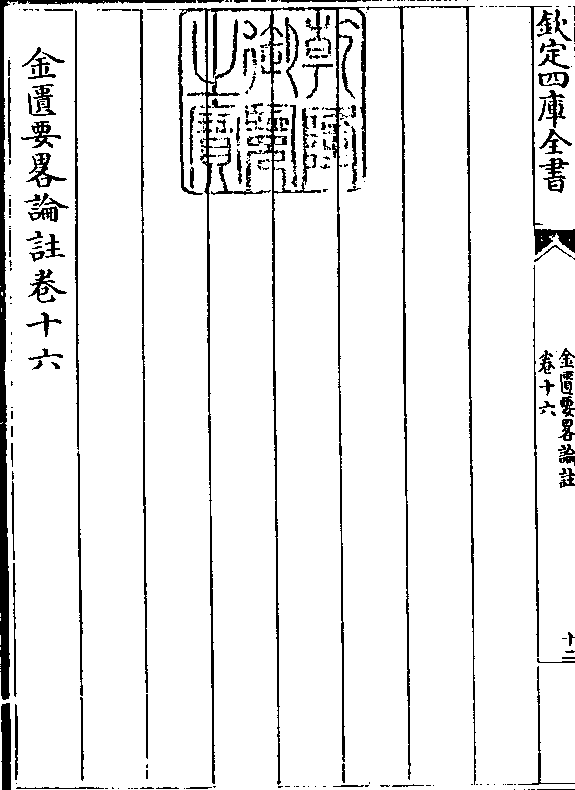 欽定四庫全書
金匱要畧論註
卷十六
十二
乾隆
御覽
之寶
金匱要畧論註卷十六